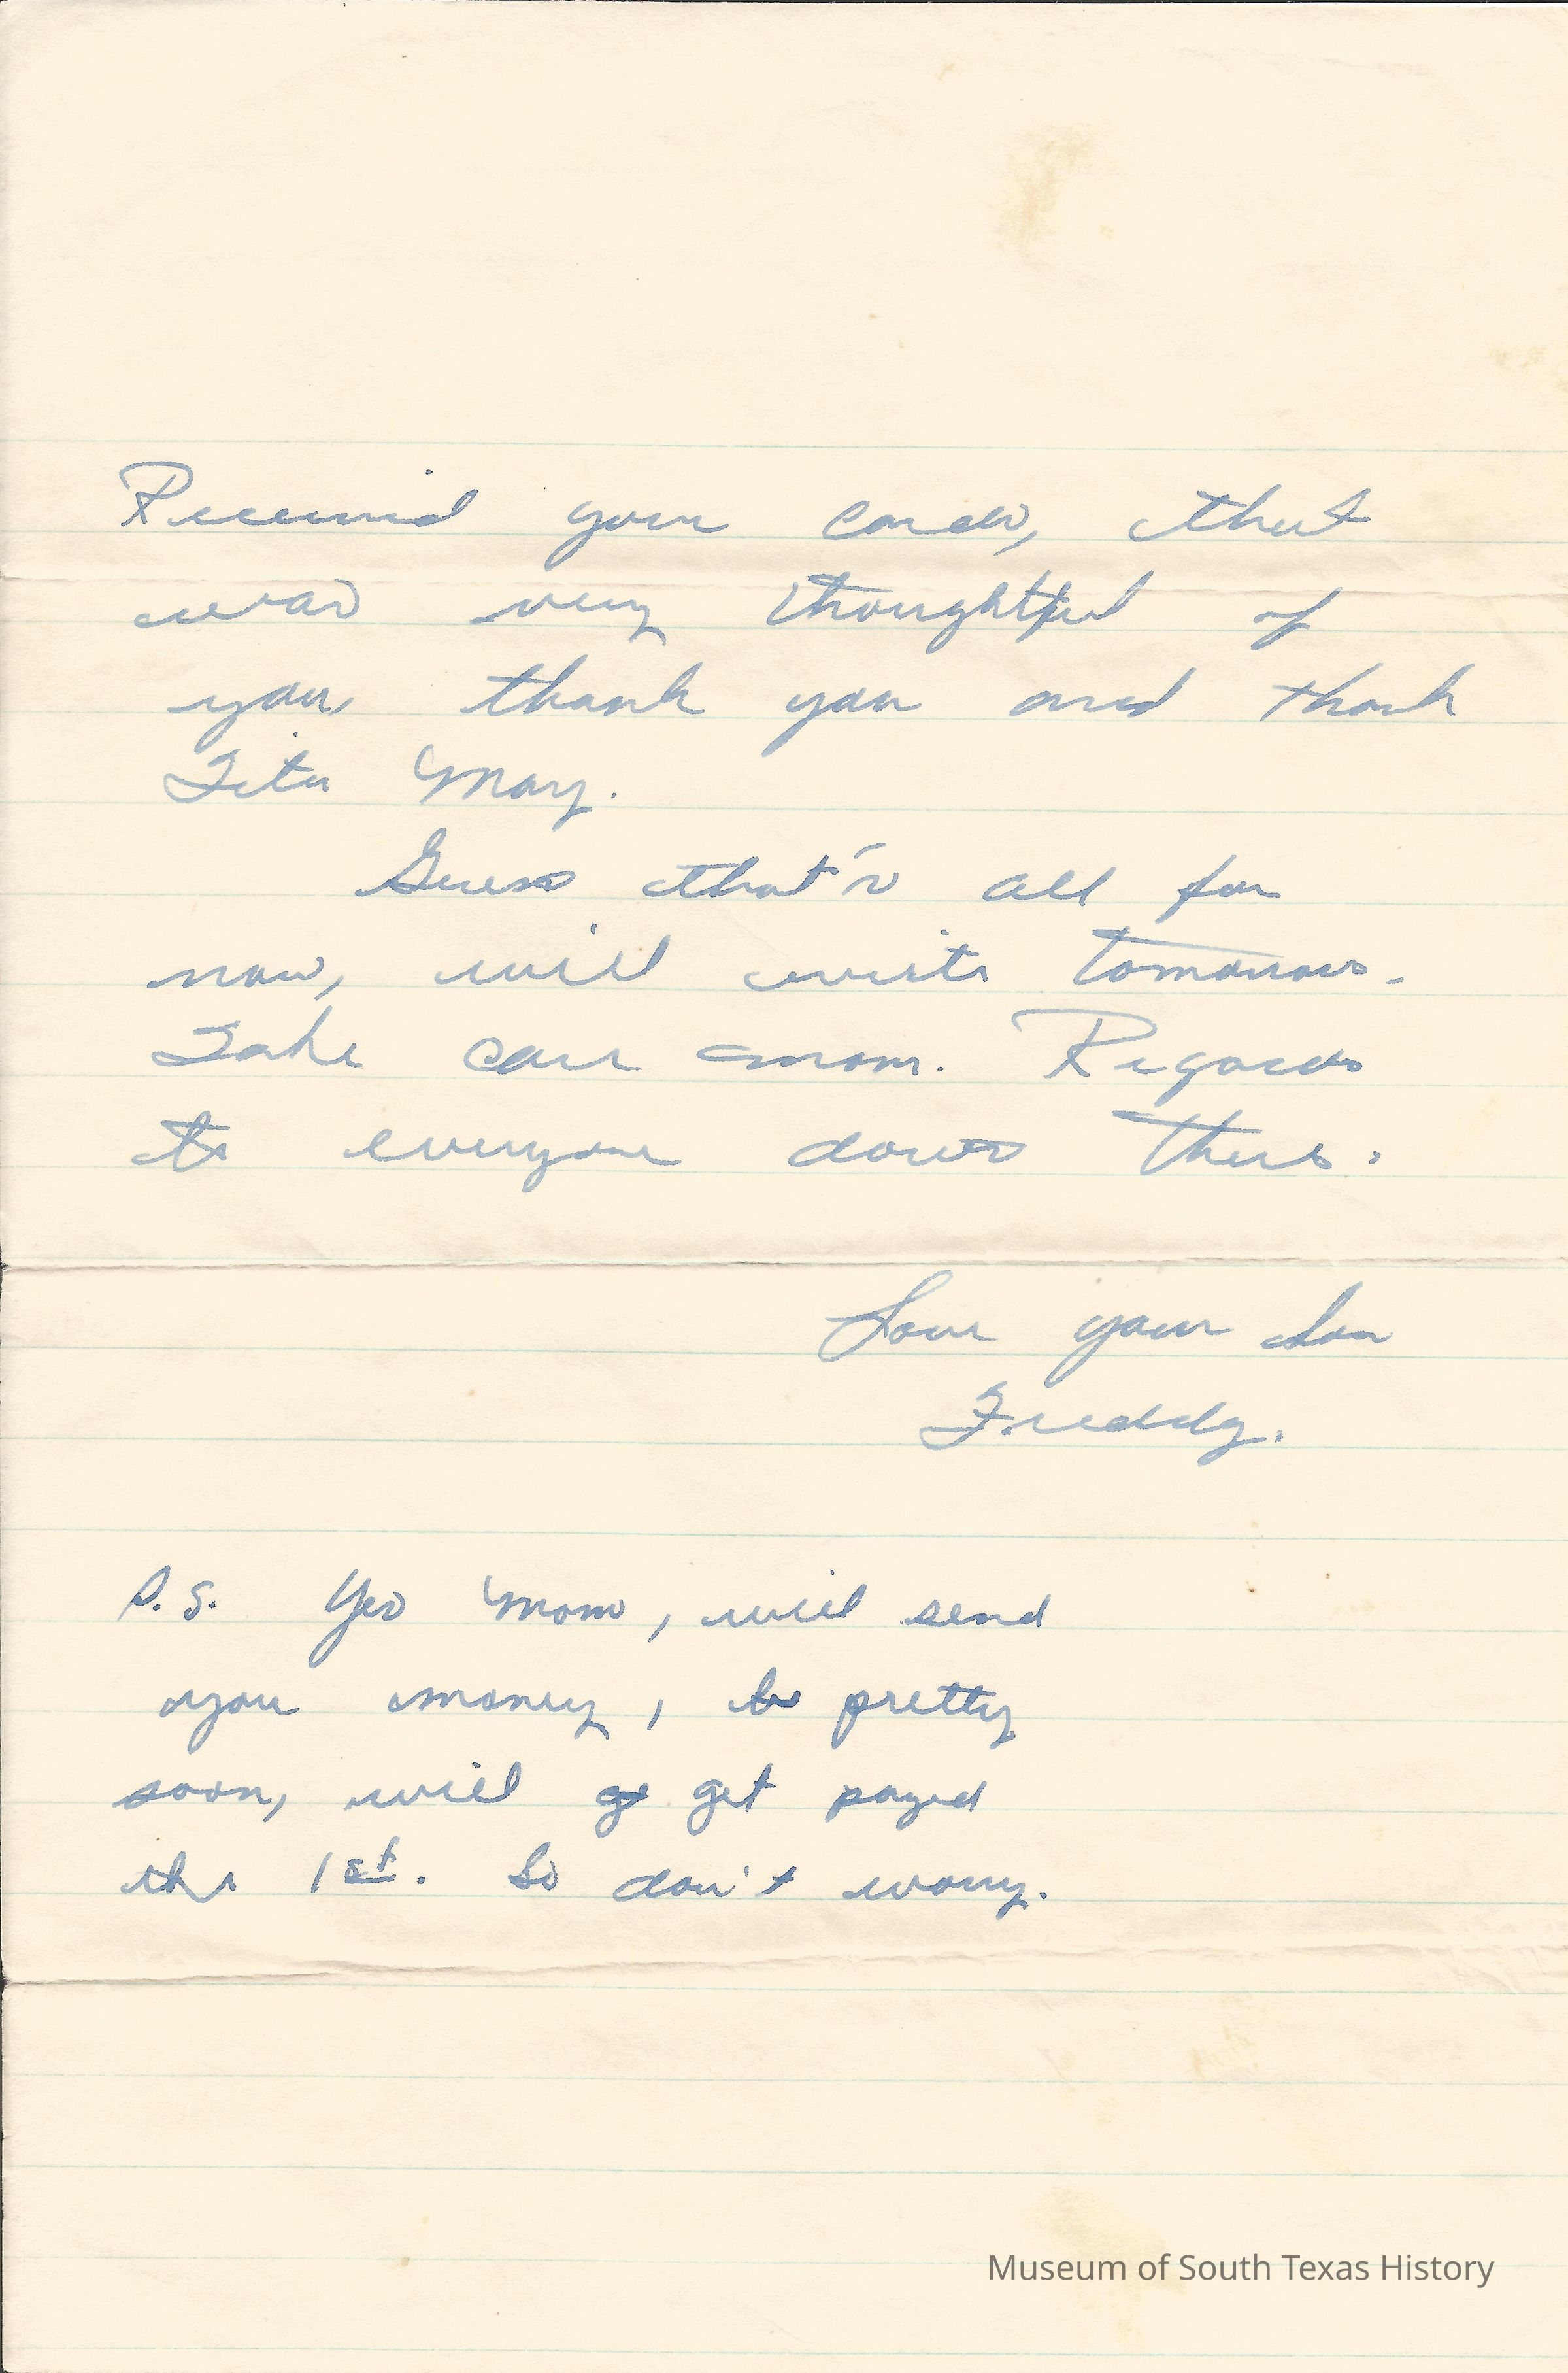 Received your cards, that
was very thoughtful of
you, thank you and thank
Tita Mary.
Guess that's all for
now, will write tomorrow.
Take care mom. Regards
to everyone down there.
Love your son
Freddy.
P.S. Yes Mom, will send
you money, be pretty
soon, will go get payed
the 1st. So don't worry.
Museum of South Texas History